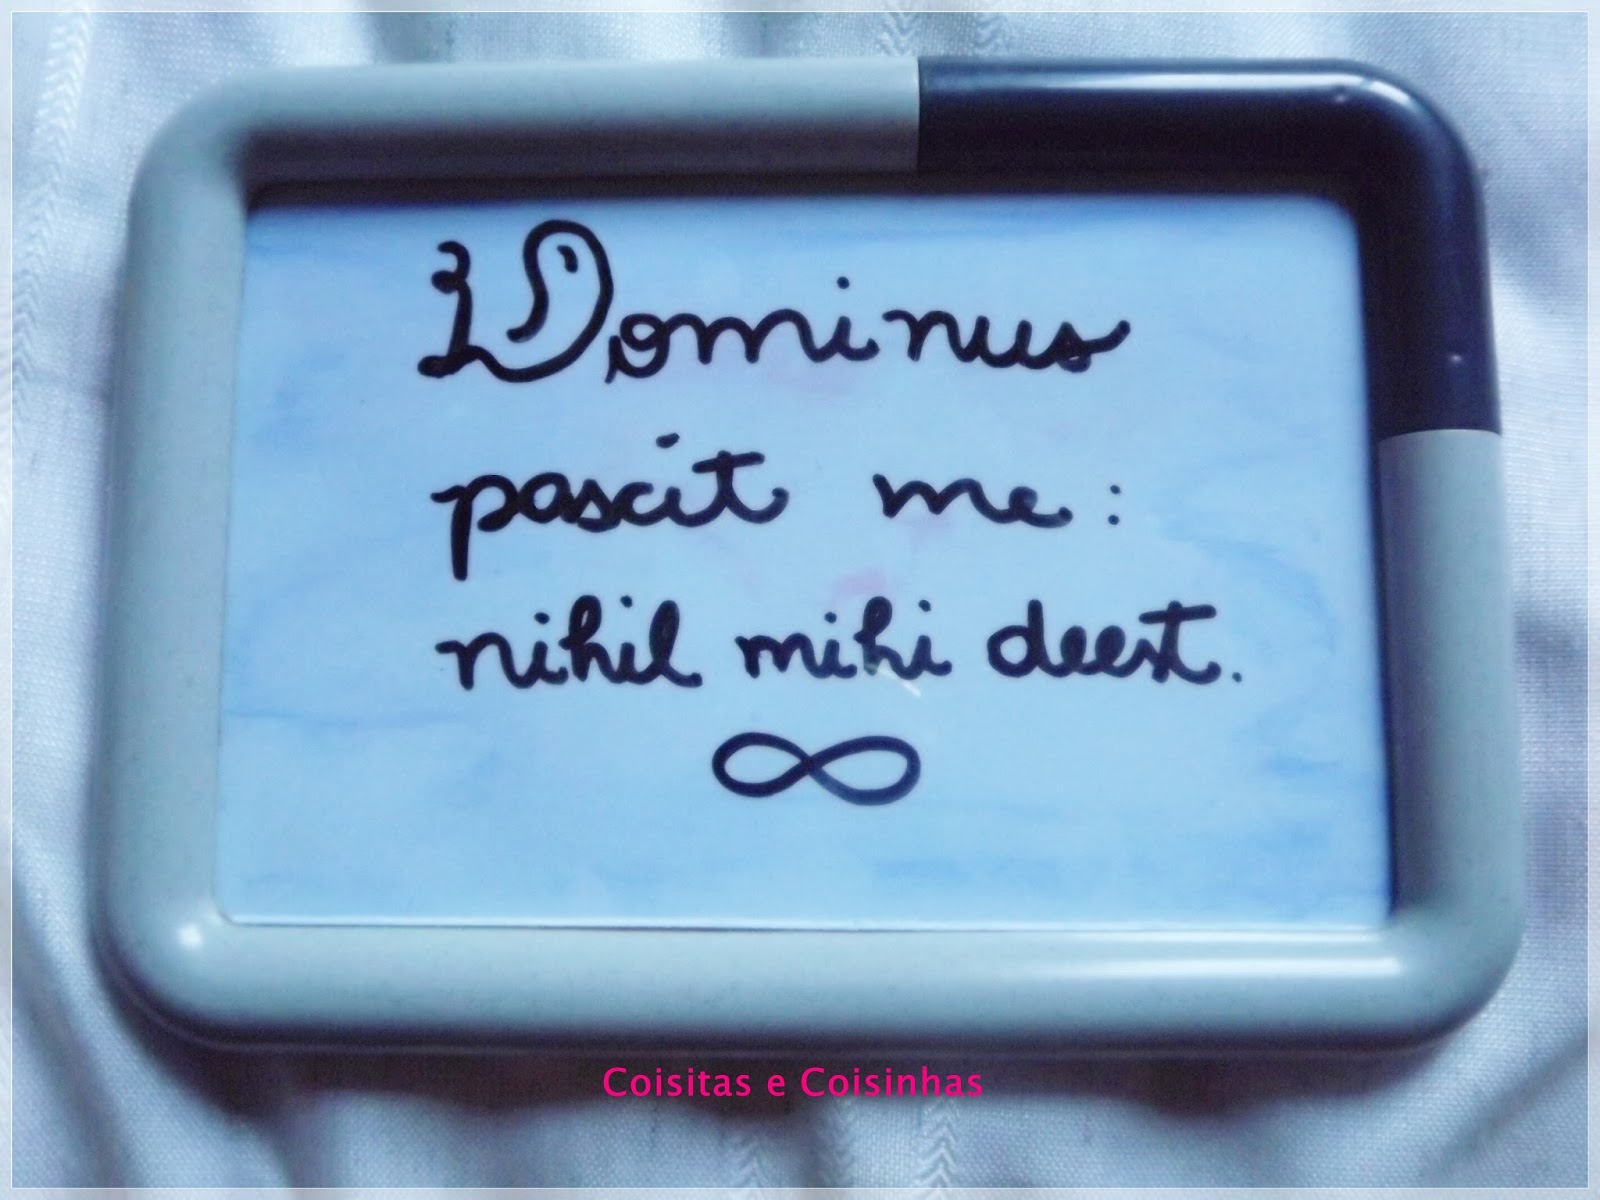 Dominus
pascit me:
nihil mihi deest.
∞
Coisitas e Coisinhas